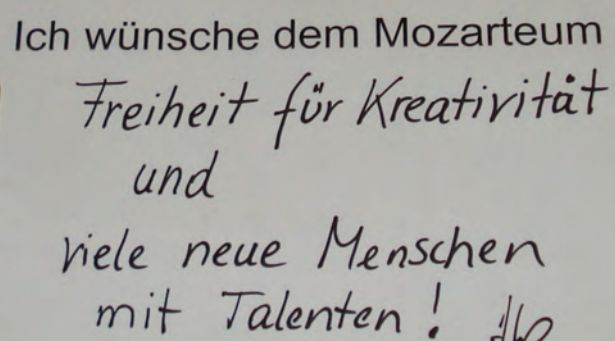 Ich wünsche dem Mozarteum
Freiheit für Kreativität
und
viele neue Menschen
mit Talenten!